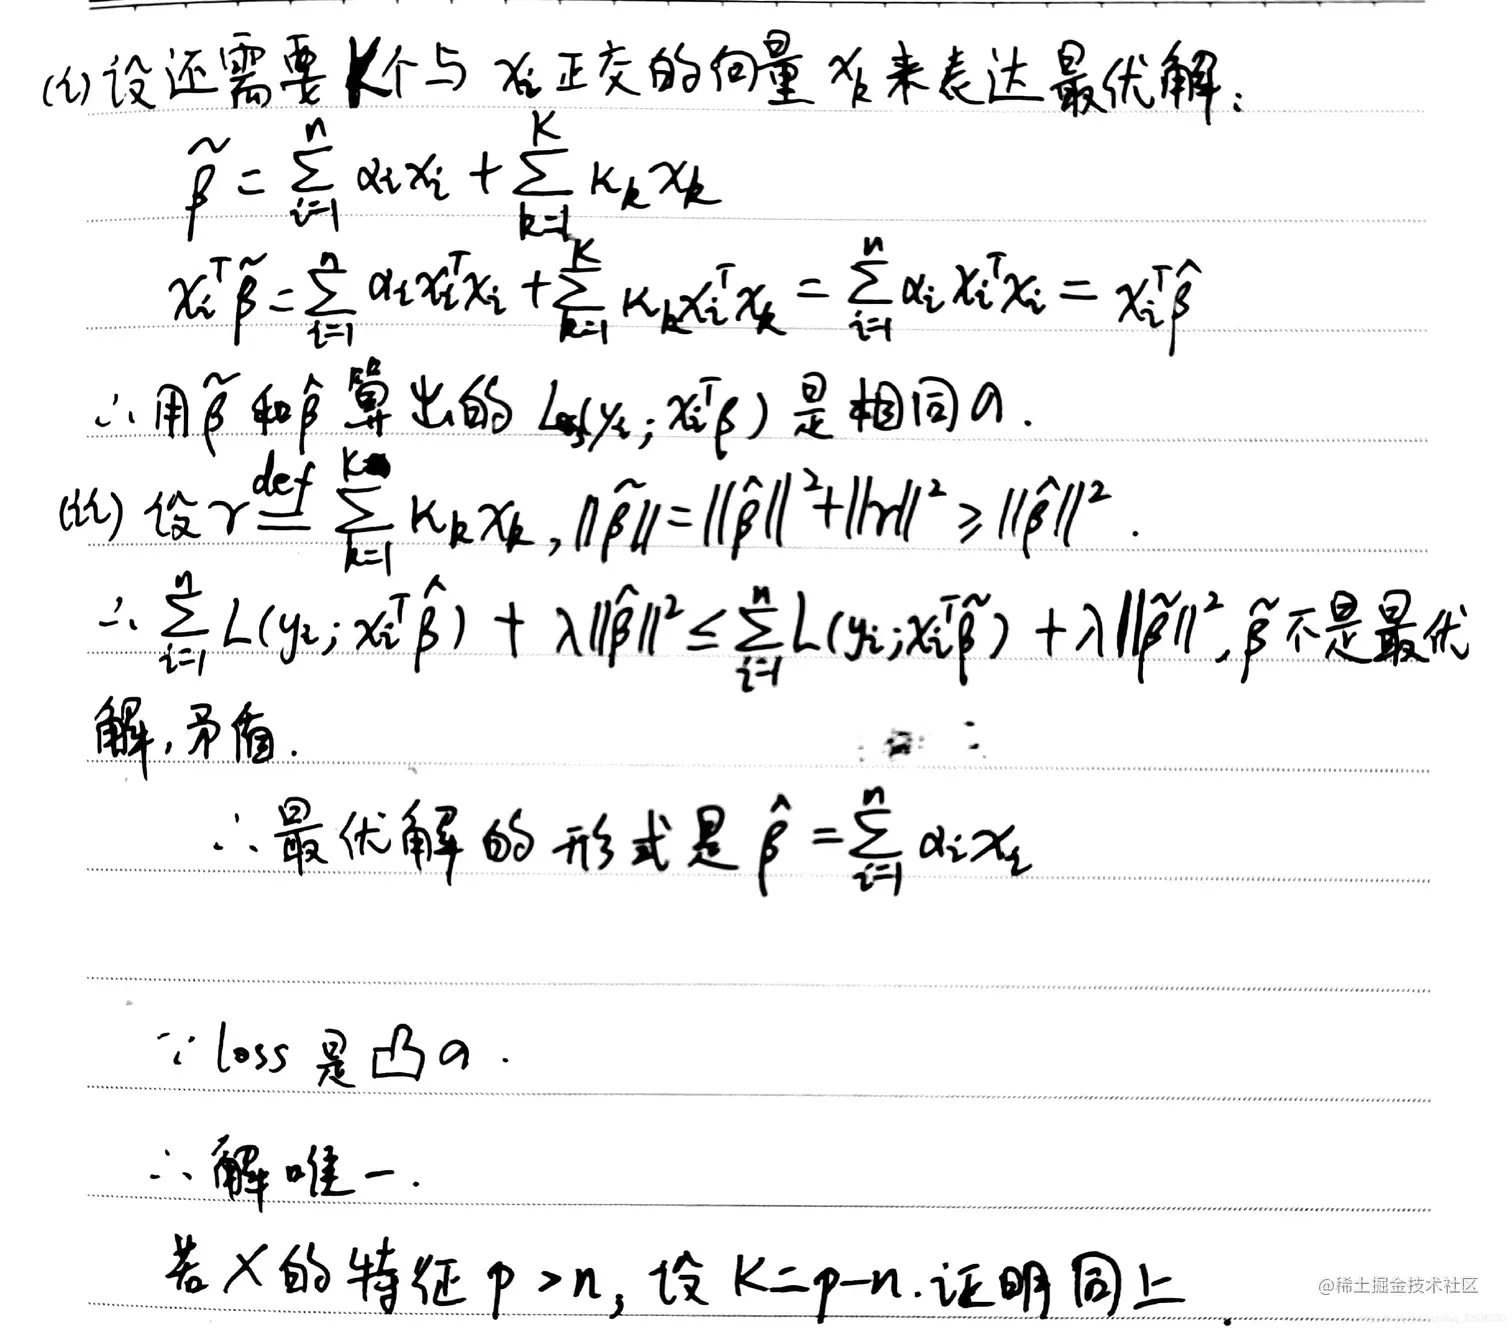 (i) 设还需要K个与 xᵢ 正交的向量 xₖ 来表达最优解:
β̃ = ∑_{i=1}^{n} αᵢxᵢ + ∑_{k=1}^{K} κₖxₖ
xᵢᵀβ̃ = ∑_{i=1}^{n} αᵢxᵢᵀxᵢ + ∑_{k=1}^{K} κₖxᵢᵀxₖ = ∑_{i=1}^{n} αᵢxᵢᵀxᵢ = xᵢᵀβ̂
∴ 用β̃和β̂算出的 L(yᵢ; xᵢᵀβ) 是相同の.
(ii) 设 r ≝ ∑_{k=1}^{K} κₖxₖ, ||β̃|| = ||β̂||² + ||r||² ≥ ||β̂||².
∴ ∑_{i=1}^{n} L(yᵢ; xᵢᵀβ̂) + λ||β̂||² ≤ ∑_{i=1}^{n} L(yᵢ; xᵢᵀβ̃) + λ||β̃||², β̃不是最优
解, 矛盾.
∴ 最优解的形式是 β̂ = ∑_{i=1}^{n} αᵢxᵢ
∵ loss 是凸の.
∴ 解唯一.
若X的特征 p > n, 设 K = p-n. 证明同上.
@稀土掘金技术社区